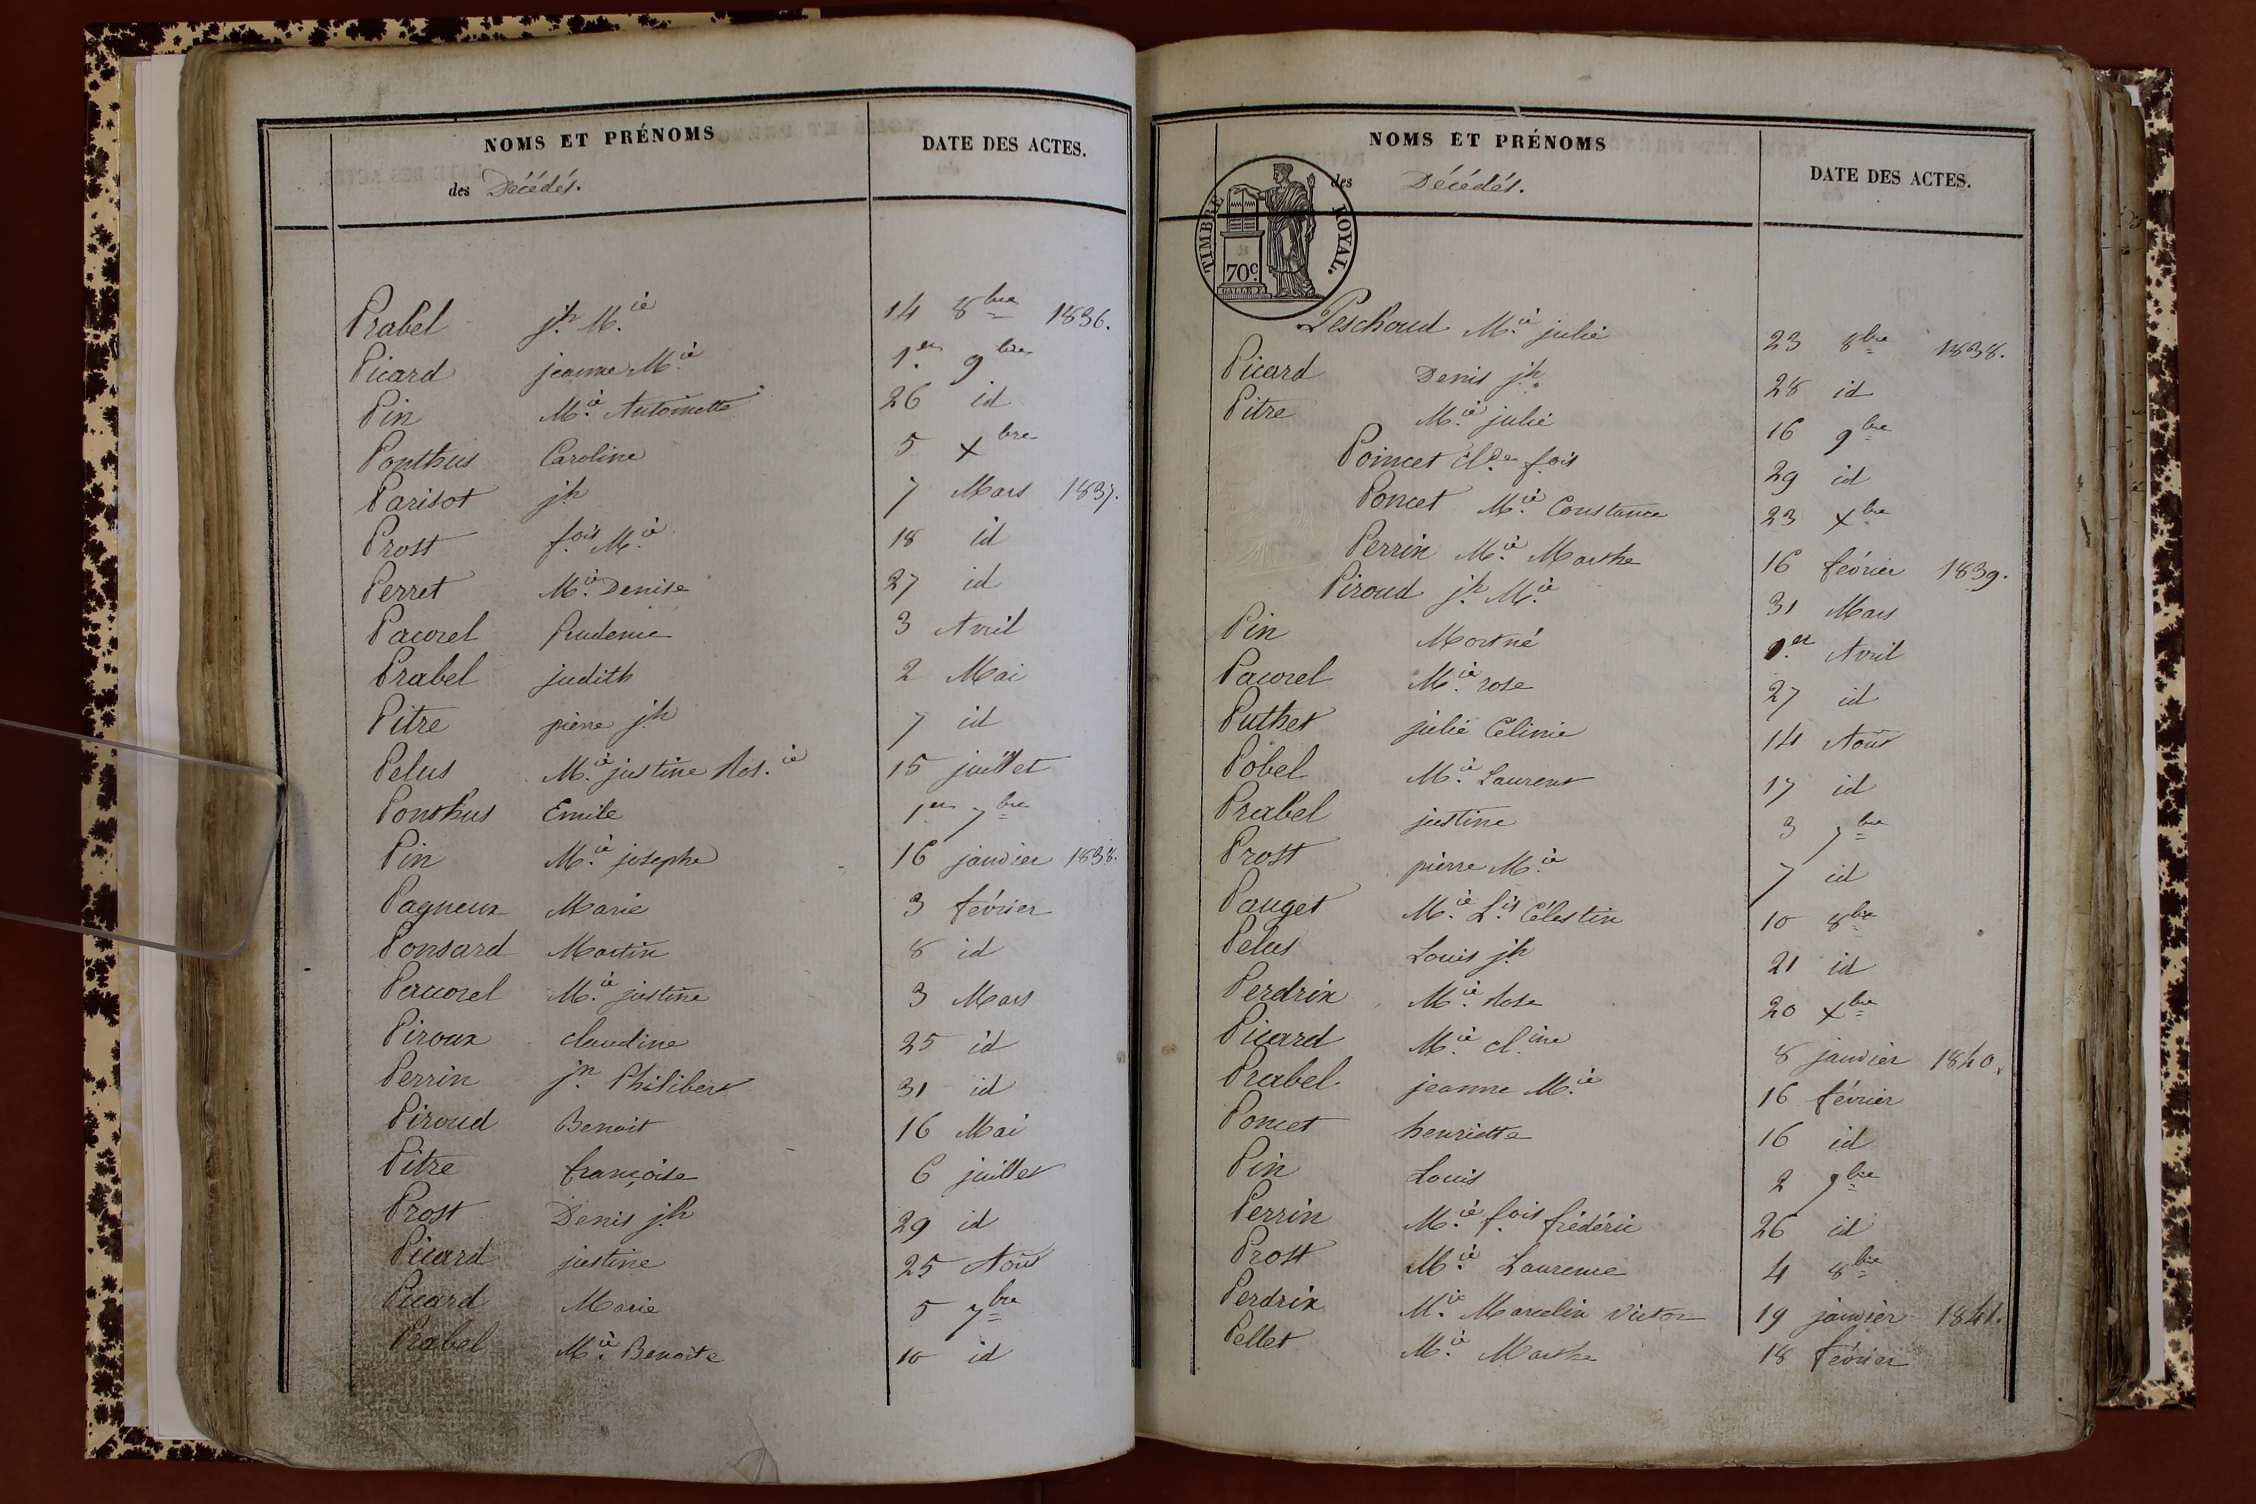 NOMS ET PRÉNOMS DATE DES ACTES.
des Décédés.
Prabel jh. M.ie 14 8bre 1836.
Picard jeanne M.ie 1.er 9bre
Pin M.ie Antoinette 26 id
Ponthus Caroline 5 Xbre
Parisot jh 7 Mars 1837.
Prost f.ois M.ie 18 id
Perret M.ie Denise 27 id
Pacorel Prudence 3 Avril
Prabel judith 2 Mai
Pitre pierre jh 7 id
Pelus M.ie justine Ros.ie 15 juillet
Ponthus Emile 1er 7bre
Pin M.ie josephe 16 janvier 1838.
Pagneux Marie 3 février
Ponsard Martin 8 id
Pacorel M.ie justine 3 Mars
Piroux claudine 25 id
Perrin jn. Philibert 31 id
Piroud Benoit 16 Mai
Pitre françoise 6 juillet
Prost Denis jh 29 id
Picard justine 25 Août
Picard Marie 5 7bre
Prabel M.ie Benoite 10 id
NOMS ET PRÉNOMS DATE DES ACTES.
des Décédés.
TIMBRE ROYAL.
70c.
Peschoud M.ie julie 23 8bre 1838.
Picard Denis jh. 28 id
Pitre M.ie julie 16 9bre
Poincet fois 29 id
Poncet M.ie Constance 23 Xbre
Perrin M.ie Marthe 16 février 1839.
Piroud jh. M.ie 31 Mars
Pin Mort né 1.er Avril
Pacorel M.ie rose 27 id
Puthet julie Célinie 14 Août
Pobel M.ie Laurent 17 id
Prabel justine 3 7bre
Prost pierre M.ie 7 id
Pauget M.ie L.is Célestin 10 8bre
Pelus Louis jh 21 id
Perdrix M.ie Rose 20 Xbre
Picard M.ie cl.ine 8 janvier 1840.
Prabel jeanne M.ie 16 février
Poncet henriette 16 id
Pin Louis 2 9bre
Perrin M.ie f.ois frédéric 26 id
Prost M.ie Laurence 4 8bre
Perdrix M.ie Marcelin Victor 19 janvier 1841.
Pellet M.ie Marthe 18 février